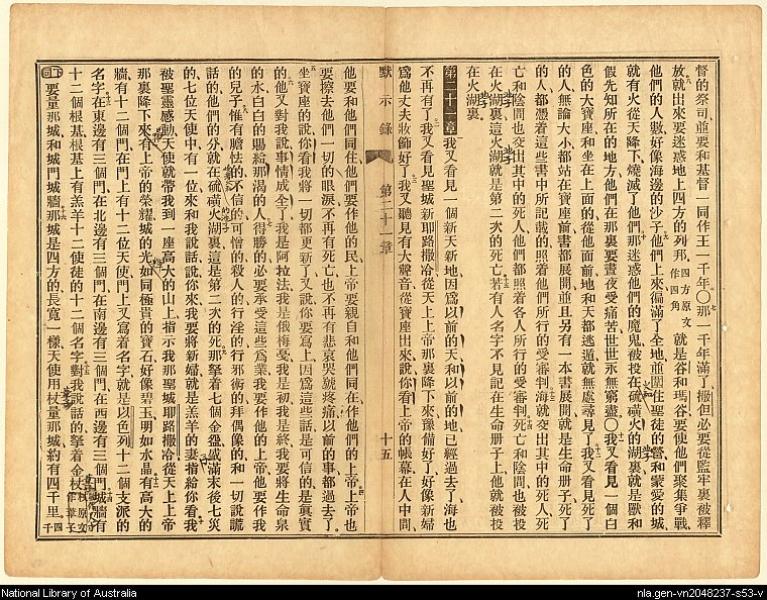 督的祭司並要和基督一同作王一千年○那一千年滿了撒但必要從監牢裏被釋
放就出來要迷惑地上四方的列邦四方原文作四角就是谷和瑪谷要使他們聚集爭戰
他們的人數好像海邊的沙子他們上來徧滿了全地並圍住聖徒的營和蒙愛的城
就有火從天降下燒滅了他們那迷惑他們的魔鬼被投在硫磺火的湖裏就是獸和
假先知所在的地方他們在那裏要晝夜受痛苦世世永無窮盡○我又看見一個白
色的大寶座和坐在上面的從他面前地和天都逃遁就無處尋見了我又看見死了
的人無論大小都站在寶座前書都展開並且另有一本書展開就是生命册子死了
的人都憑着這些書中所記載的照着他們所行的受審判海就交出其中的死人死
亡和陰間也交出其中的死人他們都照着各人所行的受審判死亡和陰間也被投
在火湖裏這火湖就是第二次的死亡若有人名字不見記在生命册子上他就被投
在火湖裏
第二十一章我又看見一個新天新地因爲以前的天和以前的地已經過去了海也
不再有了我又看見聖城新耶路撒冷從天上上帝那裏降下來豫備好了好像新婦
爲他丈夫妝飾好了我又聽見有大聲音從寶座出來說你看上帝的帳幕在人中間
默示錄 第二十一章 十五
他要和他們同住他們要作他的民上帝要親自和他們同在作他們的上帝上帝也
要擦去他們一切的眼淚不再有死亡也不再有悲哀哭號疼痛以前的事都過去了
坐寶座的說你看我將一切都更新了又說你要寫上因爲這些話是可信的是眞實
的他又對我說事情成全了我是阿拉法我是俄梅戞我是初我是終我要將生命泉
的水白白的賜給那渴的人得勝的必要承受這些爲業我要作他的上帝他要作我
的兒子惟有膽怯的不信的可憎的殺人的行淫的行邪術的拜偶像的和一切說謊
話的他們的分就在硫磺火湖裏這是第二次的死那拏着七個金盌盛滿末後七災
的七位天使中有一位來和我說話說你來我要將新婦就是羔羊的妻指給你看我
被聖靈感動天使就帶我到一座高大的山上指示我那聖城耶路撒冷從天上上帝
那裏降下來有上帝的榮耀城的光如同極貴的寶石好像碧玉明如水晶有高大的
牆有十二個門在門上有十二位天使門上又寫着名字就是以色列十二個支派的
名字在東邊有三個門在北邊有三個門在南邊有三個門在西邊有三個門城牆有
十二個根基根基上有羔羊十二使徒的十二個名字對我說話的拏着金杖杖原文作葦子
要量那城和城門城牆那城是四方的長寬一樣天使用杖量那城約有四千里四千
National Library of Australia
nla.gen-vn2048237-s53-v